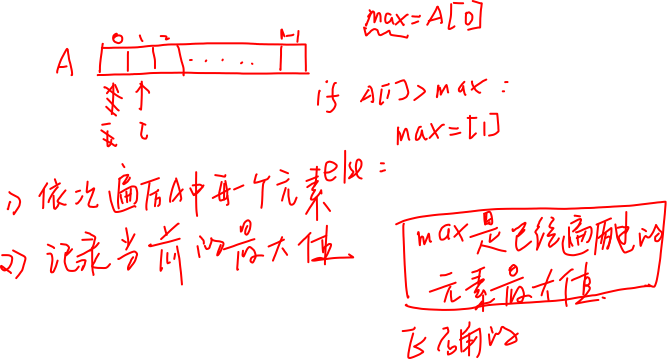 max=A[0]
0 1 2 n-1
A ......
if A[i]>max:
i i
max=[i]
else:
1) 依次遍历A中每一个元素
2) 记录当前的最大值
max是已经遍历过的
元素最大值
正确的